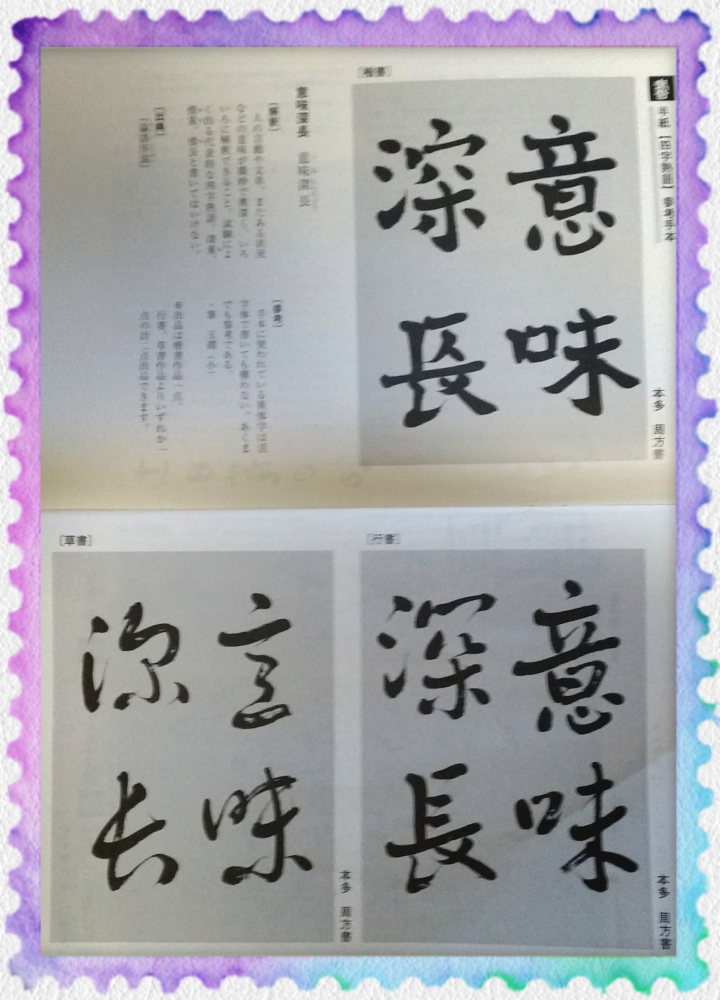 半紙【四字熟語】参考手本
〔楷書〕
意味
深長
本多 周方書
意味深長 意味深長
〔解釈〕
人の言動や文章、またある状況
などの意味が微妙で奥深く、いろ
いろに解釈できること。試験によ
く出る代表的な四字熟語。
と書いてはいけない。
〔出典〕
〔参考〕
日本に使われている
字体で書いても構わない。あくま
でも参考である。
※出品は楷書作品一点、
行書、草書作品よりいずれか一
点の計二点出品できます。
〔行書〕
意味
深長
本多 周方書
〔草書〕
意味
深长
本多 周方書